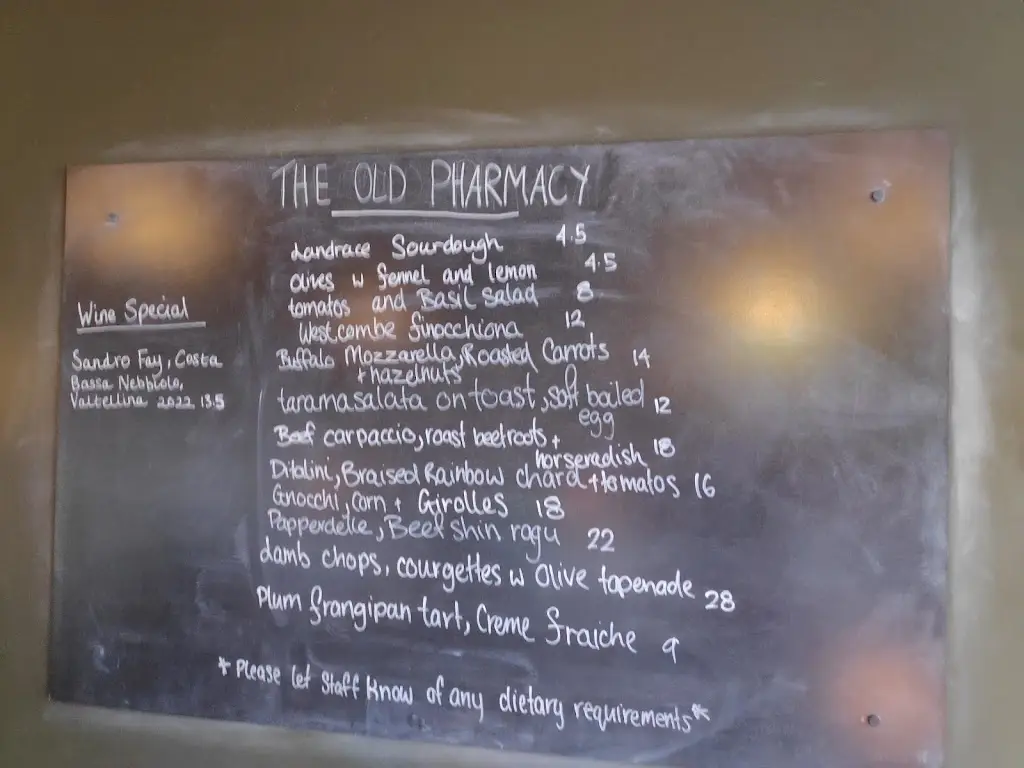 THE OLD PHARMACY
Landrace Sourdough 4.5
Olives w fennel and lemon 4.5
tomatos and Basil Salad 8
Westcombe finocchiona 12
Buffalo Mozzarella, Roasted Carrots
+ hazelnuts 14
taramasalata on toast, soft boiled
egg 12
Beef carpaccio, roast beetroots +
horseradish 18
Ditalini, Braised Rainbow chard + tomatos 16
Gnocchi, Corn + Girolles 18
Papperdelle, Beef shin ragu 22
Lamb chops, courgettes w Olive tapenade 28
Plum frangipan tart, Creme fraiche 9
*Please let Staff know of any dietary requirements*
Wine Special
Sandro Fay, Costa
Bassa Nebbiolo,
Valtellina 2022 13.5